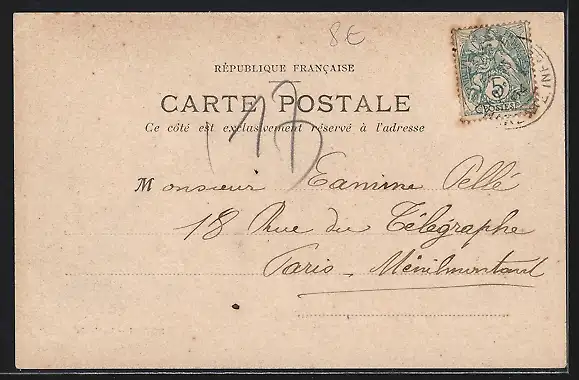 8E
RÉPUBLIQUE FRANÇAISE
CARTE POSTALE
Ce côté est exclusivement réservé à l'adresse
Monsieur Pellé
18 Rue du Télégraphe
Paris - Ménilmontant
5
POSTES